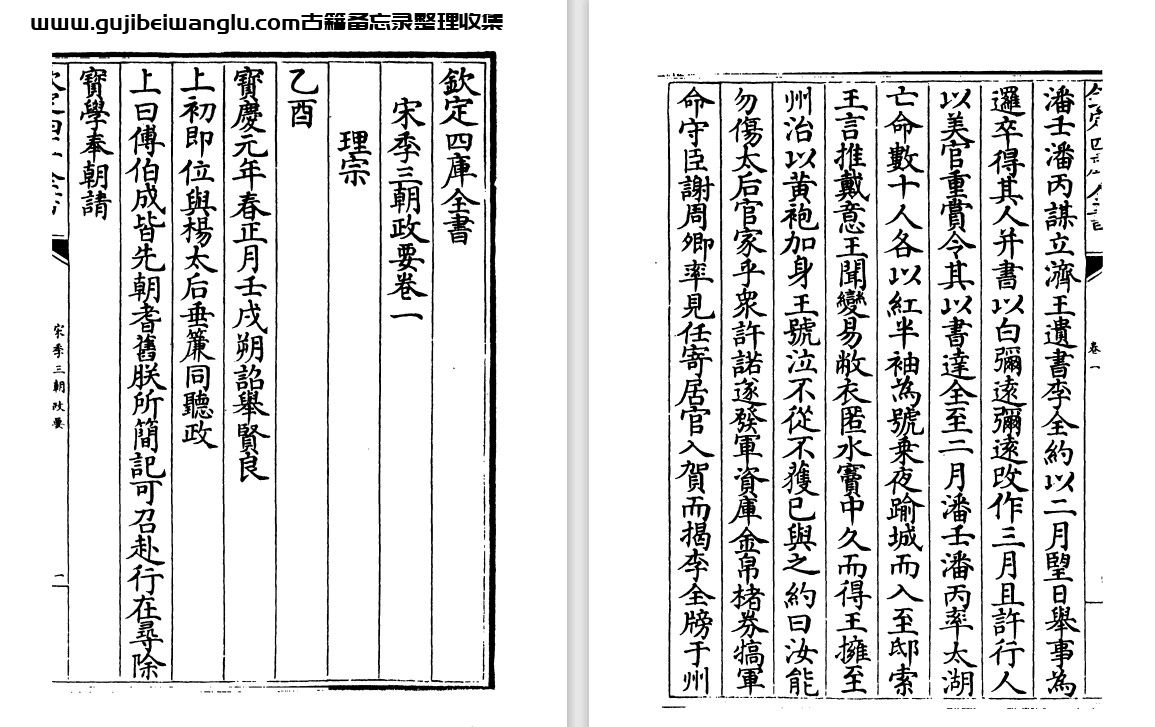 www.gujibeiwanglu.com古籍备忘录整理收集
欽定四庫全書
宋季三朝政要卷一
理宗
乙酉
寶慶元年春正月壬戌朔詔舉賢良
上初即位與楊太后垂簾同聽政
上曰傅伯成皆先朝耆舊朕所簡記可召赴行在尋除
寶學奉朝請
宋季三朝政要
二
卷一
潘壬潘丙謀立濟王遺書李全約以二月朢日舉事為
邏卒得其人并書以白彌遠彌遠改作三月且許行人
以美官重賞令其以書達全至二月潘壬潘丙率太湖
亡命數十人各以紅半袖為號乗夜踰城而入至邸索
王言推戴意王聞變易敝衣匿水竇中久而得王擁至
州治以黄袍加身王號泣不從不獲已與之約曰汝能
勿傷太后官家乎衆許諾遂發軍資庫金帛楮券犒軍
命守臣謝周卿率見任寄居官入賀而揭李全牓于州